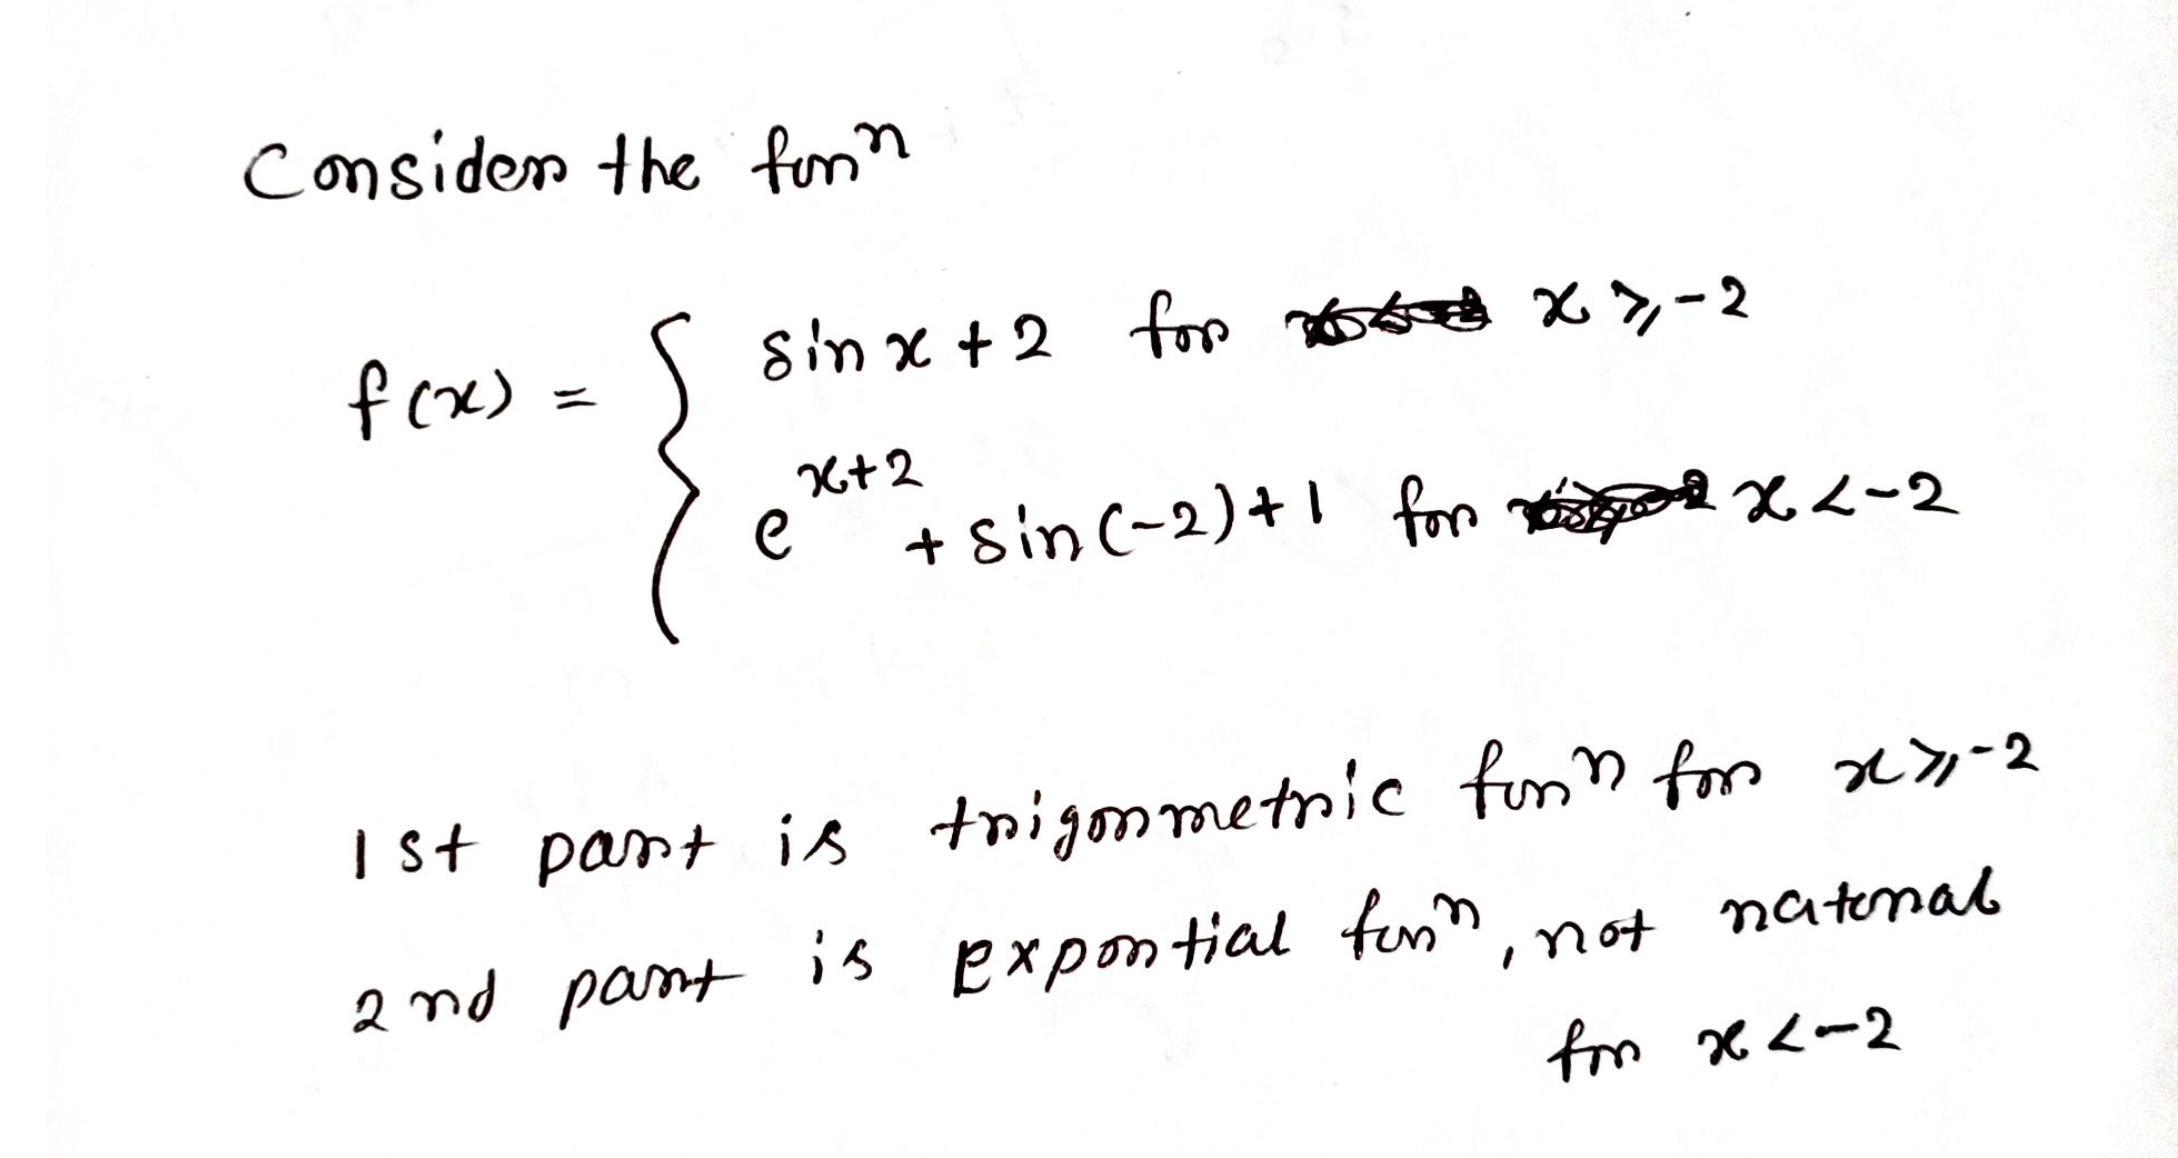 Consider the funⁿ
f(x) = { sin x + 2 for x ⩾ -2
e^{x+2} + sin(-2) + 1 for x < -2
1st part is trigonmetric funⁿ for x ⩾ -2
2nd part is expontial funⁿ, not natural
for x < -2